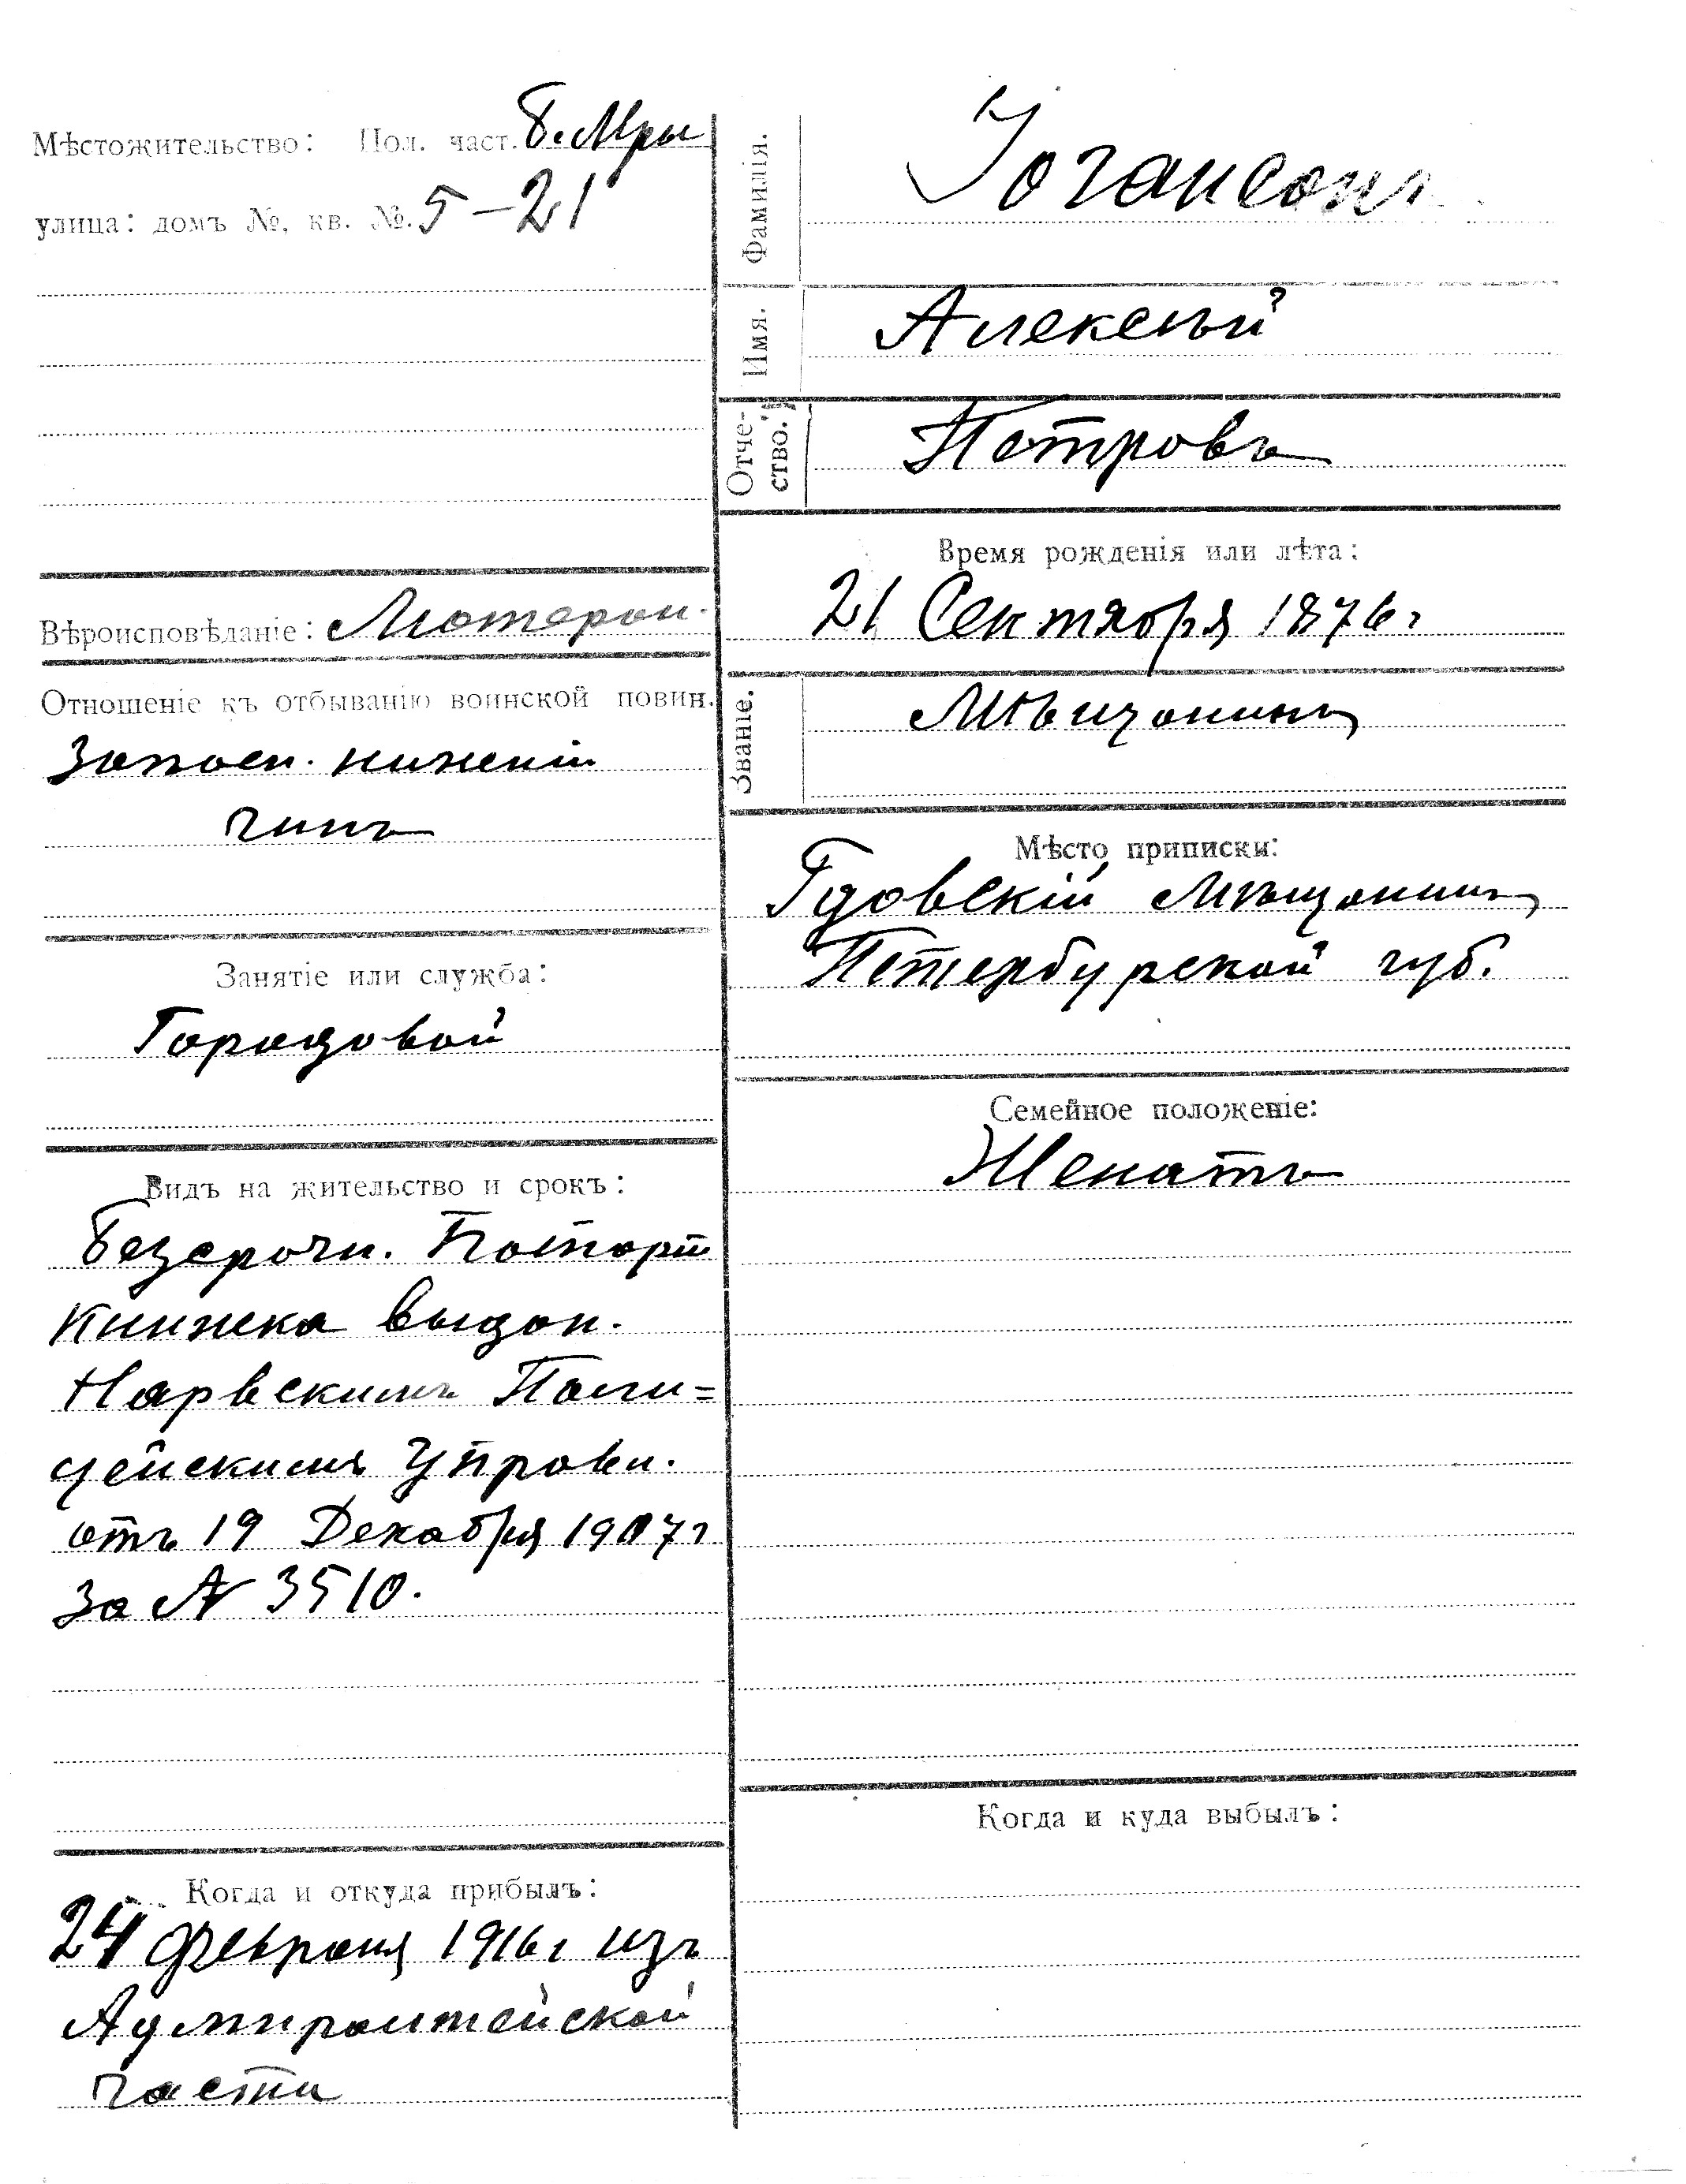 Мѣстожительство: Пол. част. Б. Мры
улица: домъ №, кв. №. 5–21
Вѣроисповѣданіе: Лютеран.
Отношеніе къ отбыванію воинской повин.
Запасн. нижній
чинъ
Занятіе или служба:
Городовой
Видъ на жительство и срокъ:
Безсрочн. Паспорт
книжка выдан.
Нарвскимъ Поли=
цейскимъ Управл.
отъ 19 Декабря 1907 г
за № 3510.
Когда и откуда прибылъ:
24 Февраля 1916 г изъ
Адмиралтейской
части
Фамилія.
Іогансонъ
Имя.
Алексѣй
Отче-
ство.
Петровъ
Время рожденія или лѣта:
21 Сентября 1876 г
Званіе.
Мѣщанинъ
Мѣсто приписки:
Гдовскій Мѣщанинъ
Петербурской губ.
Семейное положеніе:
Женатъ
Когда и куда выбылъ: